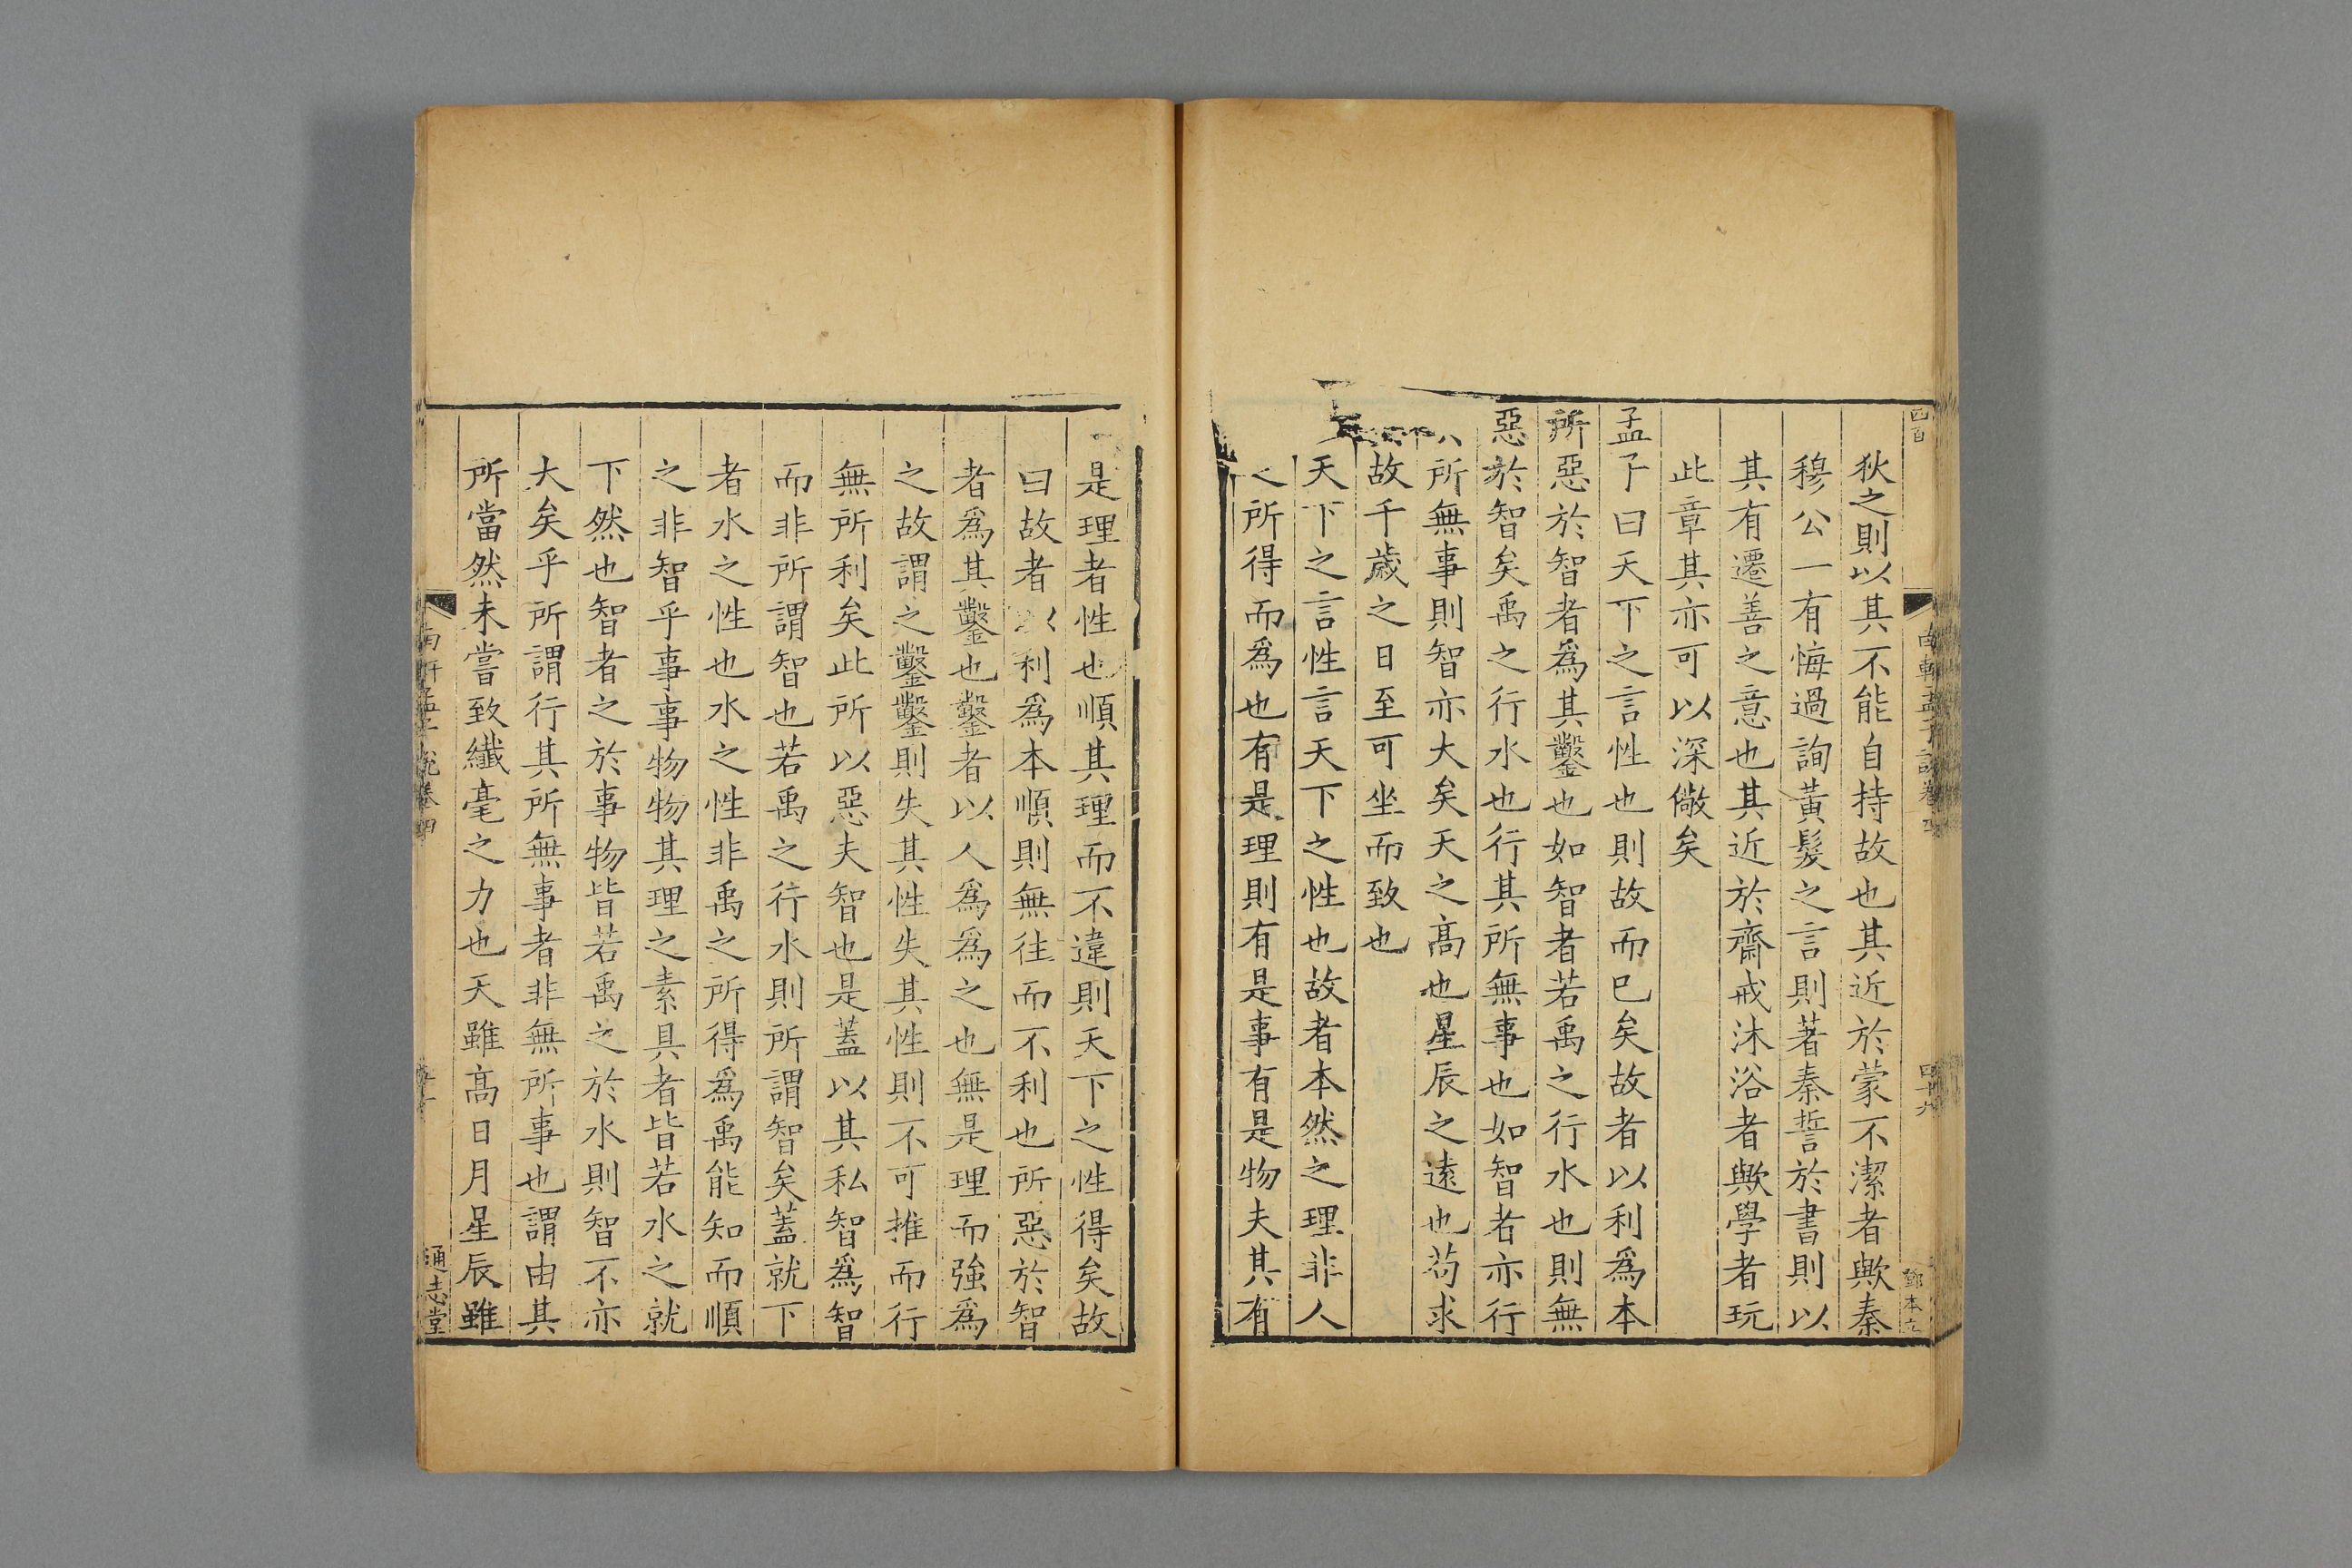 四百
鄧本立
狄之則以其不能自持故也其近於蒙不潔者歟秦
穆公一有悔過詢黃髮之言則著秦誓於書則以
其有遷善之意也其近於齋戒沐浴者歟學者玩
此章其亦可以深儆矣
孟子曰天下之言性也則故而已矣故者以利爲本
所惡於智者爲其鑿也如智者若禹之行水也則無
惡於智矣禹之行水也行其所無事也如智者亦行
所無事則智亦大矣天之髙也星辰之遠也茍求
故千歲之日至可坐而致也
天下之言性言天下之性也故者本然之理非人
之所得而爲也有是理則有是事有是物夫其有
是理者性也順其理而不違則天下之性得矣故
曰故者以利爲本順則無往而不利也所惡於智
者爲其鑿也鑿者以人爲爲之也無是理而強爲
之故謂之鑿鑿則失其性失其性則不可推而行
無所利矣此所以惡夫智也是蓋以其私智爲智
而非所謂智也若禹之行水則所謂智矣蓋就下
者水之性也水之性非禹之所得爲禹能知而順
之非智乎事事物物其理之素具者皆若水之就
下然也智者之於事物皆若禹之於水則智不亦
大矣乎所謂行其所無事者非無所事也謂由其
所當然未嘗致纖毫之力也天雖髙日月星辰雖
南軒孟子說卷四
通志堂